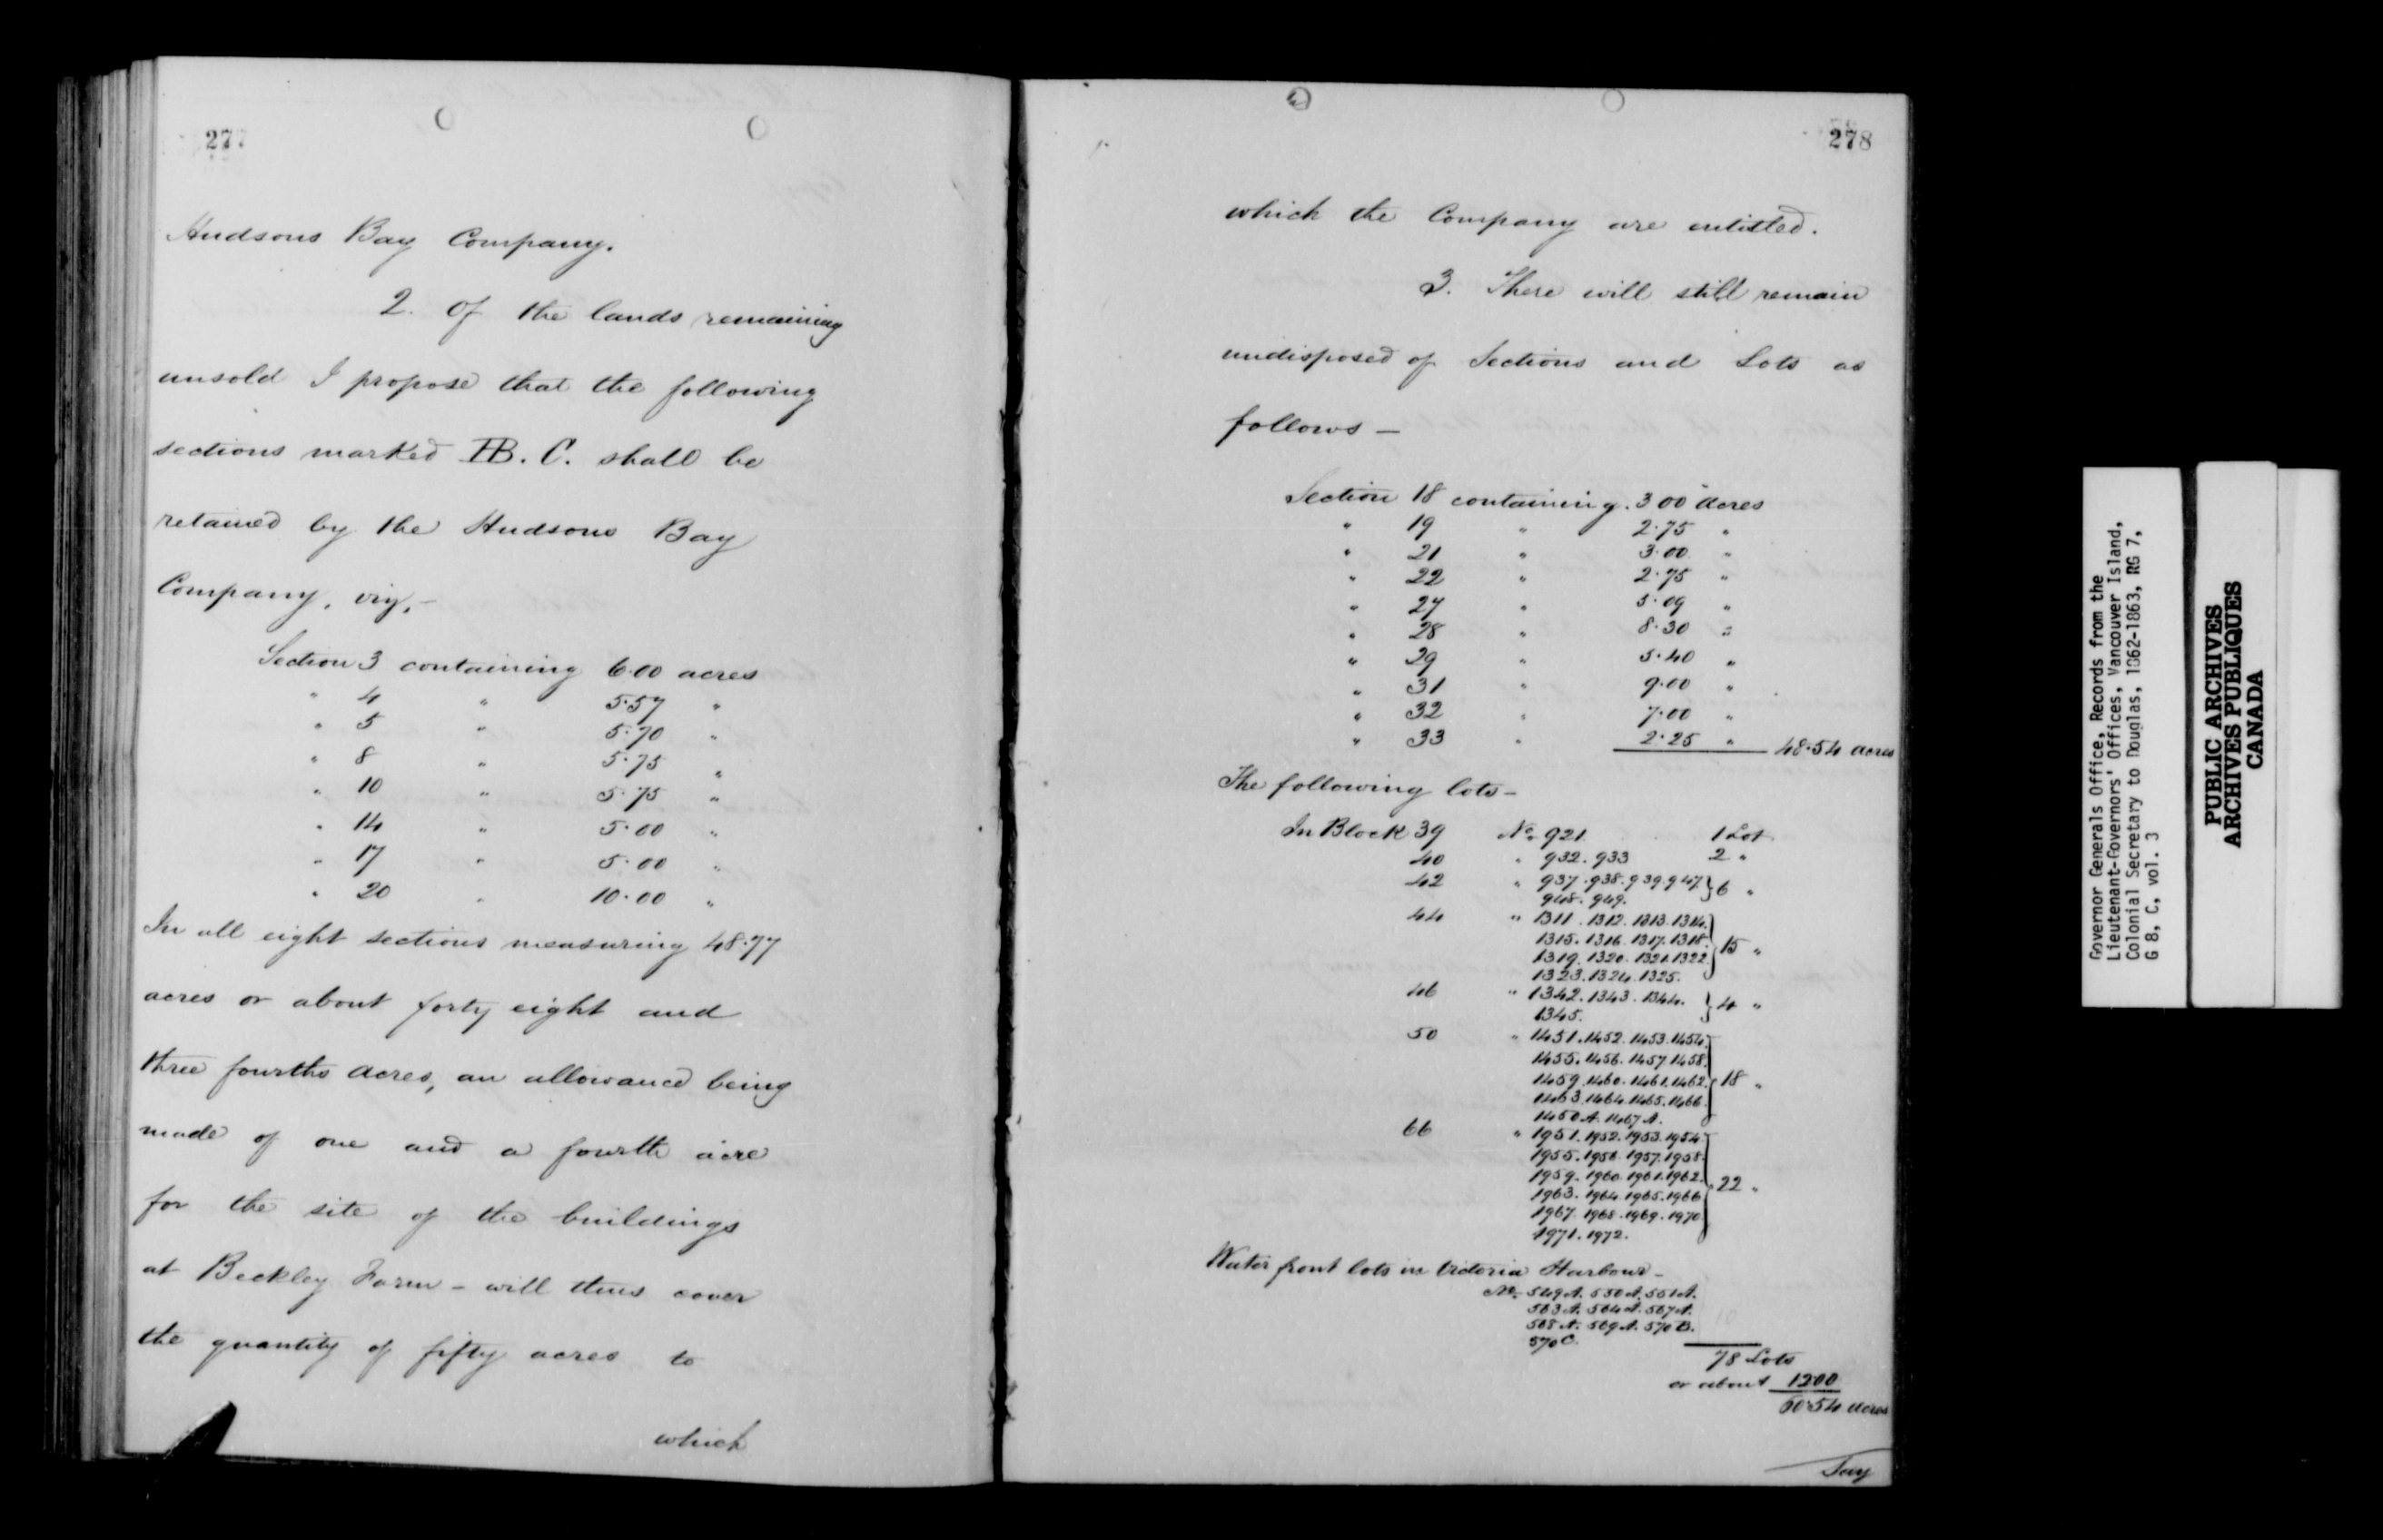 277
Hudsons Bay Company.
2. Of the lands remaining
unsold I propose that the following
sections marked HB. C. shall be
retained by the Hudsons Bay
Company, viz, -
Section 3 containing 6.00 acres
" 4 " 5.57 "
" 5 " 5.70 "
" 8 " 5.75 "
" 10 " 5.75 "
" 14 " 5.00 "
" 17 " 5.00 "
" 20 " 10.00 "
In all eight sections measuring 48.77
acres or about forty eight and
three fourths acres, an allowance being
made of one and a fourth acre
for the site of the buildings
at Beckley Farm - will thus cover
the quantity of fifty acres to
which
278
which the Company are entitled.
3. There will still remain
undisposed of Sections and Lots as
follows —
Section 18 containing. 3 00 acres
" 19 " 2.75 "
" 21 " 3.00 "
" 22 " 2.75 "
" 27 " 5.09 "
" 28 " 8.30 "
" 29 " 5.40 "
" 31 " 9.00 "
" 32 " 7.00 "
" 33 " 2.25 " 48.54 acres
The following lots -
In Block 39 No. 921. 1 Lot
40 " 932. 933 2 "
42 " 937. 938. 939. 947 } 6 "
948. 949.
44 " 1311. 1312. 1313. 1314.
1315. 1316. 1317. 1318. } 15 "
1319. 1320. 1321. 1322
1323. 1324. 1325.
46 " 1342. 1343. 1344. } 4 "
1345.
50 " 1451. 1452. 1453. 1454.
1455. 1456. 1457. 1458.
1459. 1460. 1461. 1462. } 18 "
1463. 1464. 1465. 1466.
1450 A. 1467 A.
66 " 1951. 1952. 1953. 1954
1955. 1956. 1957. 1958.
1959. 1960. 1961. 1962.
1963. 1964. 1965. 1966 } 22 "
1967. 1968. 1969. 1970
1971. 1972.
Water front lots in Victoria Harbour -
No. 549 A. 550 A. 551 A.
563 A. 564 A. 567 A.
568 A. 569 A. 570 B.
570 C.
78 Lots
or about 12 00
60.54 acres
Say
Governor Generals Office, Records from the
Lieutenant-Governors' Offices, Vancouver Island,
Colonial Secretary to Douglas, 1862-1863, RG 7,
G 8, C, vol. 3
PUBLIC ARCHIVES
ARCHIVES PUBLIQUES
CANADA